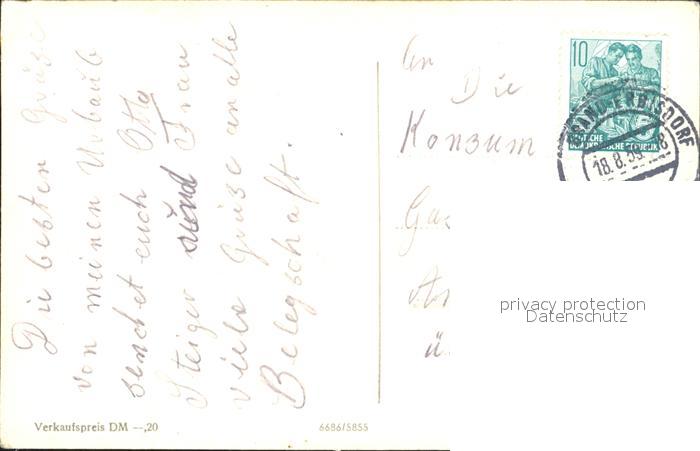 Die besten Grüße
von meinen Urbaub
sendet euch Otto
Steiger und Frau
viele Grüße an alle
Belegschaft.
An
Die
Konsum
Ga
ü.
10
DEUTSCHE
DEMOKRATISCHE REPUBLIK
BRAND-ERBISDORF
18.8.59-18
privacy protection
Datenschutz
Verkaufspreis DM —,20
6686/5855